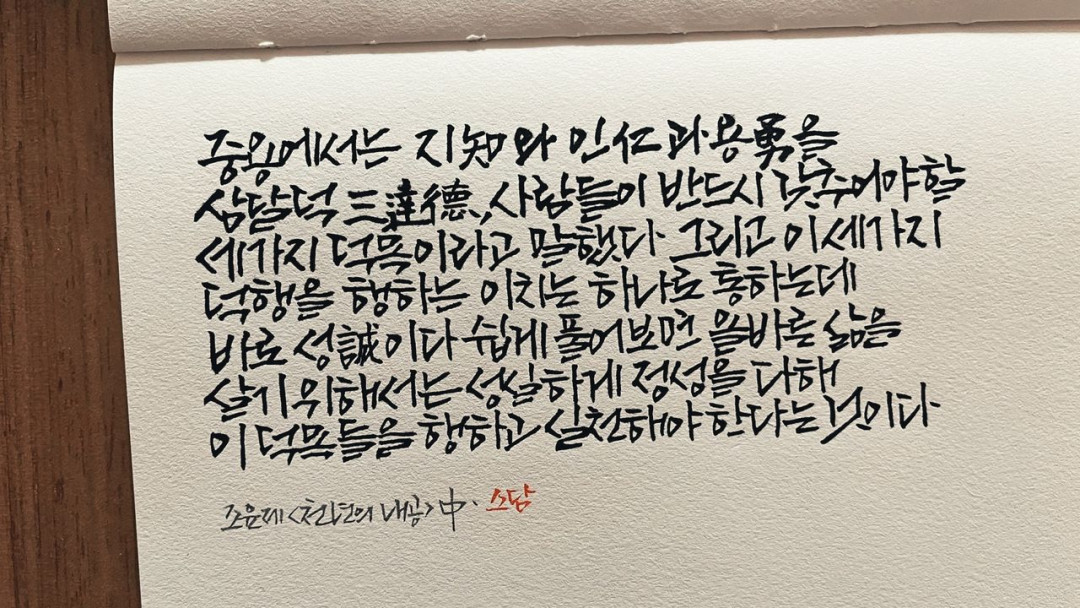 중용에서는 지知와 인仁과 용勇을
삼달덕 三達德, 사람들이 반드시 갖추어야할
세가지 덕목이라고 말했다. 그리고 이 세가지
덕행을 행하는 이치는 하나로 통하는데
바로 성誠이다 쉽게 풀어보면 올바른 삶을
살기 위해서는 성실하게 정성을 다해
이 덕목들을 행하고 실천해야 한다는 것이다.
조윤제 <천년의 내공> 中. 소담